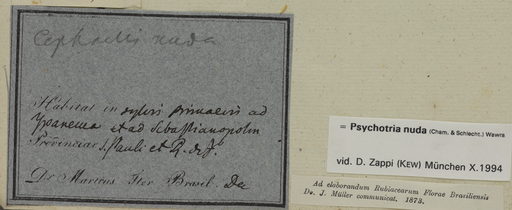 Cephaelis nuda
Habitat in sylvis primaevis ad
Ypanema et ad Sebastianopolin
Provinciar S. Pauli et R. de J.
Dr. Martius Iter Brasil. Da
= Psychotria nuda (Cham. & Schlecht.) Wawra
vid. D. Zappi (KEW) München X.1994
Ad elaborandum Rubiacearum Florae Brasiliensis
Do. J. Müller communicat. 1873.